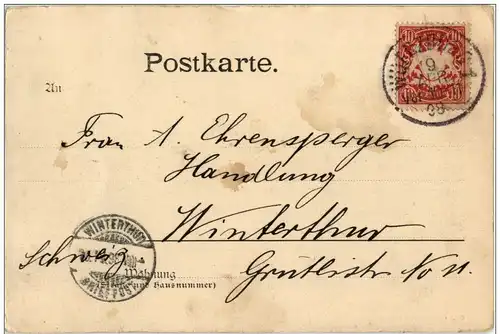 Postkarte.
An
Frau A. Ehrensperger
Handlung
Winterthur
Schweiz
Grütlistr. No 11.
Wohnung
und Hausnummer)
WINTERTHUR
BRIEFPOST
10 10